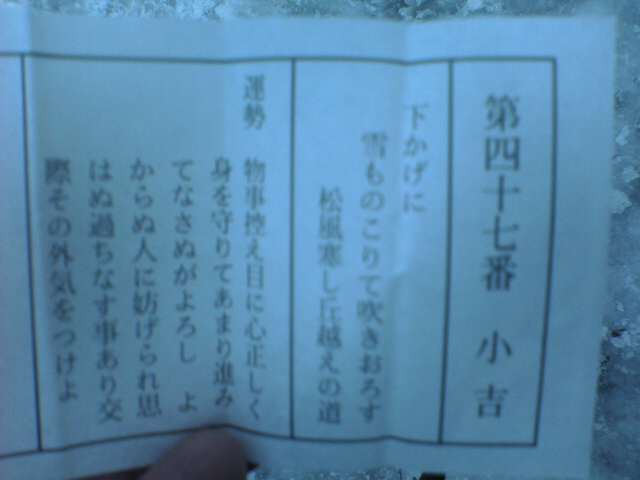 第四十七番 小吉
下かげに
雪ものこりて吹きおろす
松風寒し丘越えの道
運勢 物事控え目に心正しく
身を守りてあまり進み
てなさぬがよろし よ
からぬ人に妨げられ思
はぬ過ちなす事あり交
際その外気をつけよ